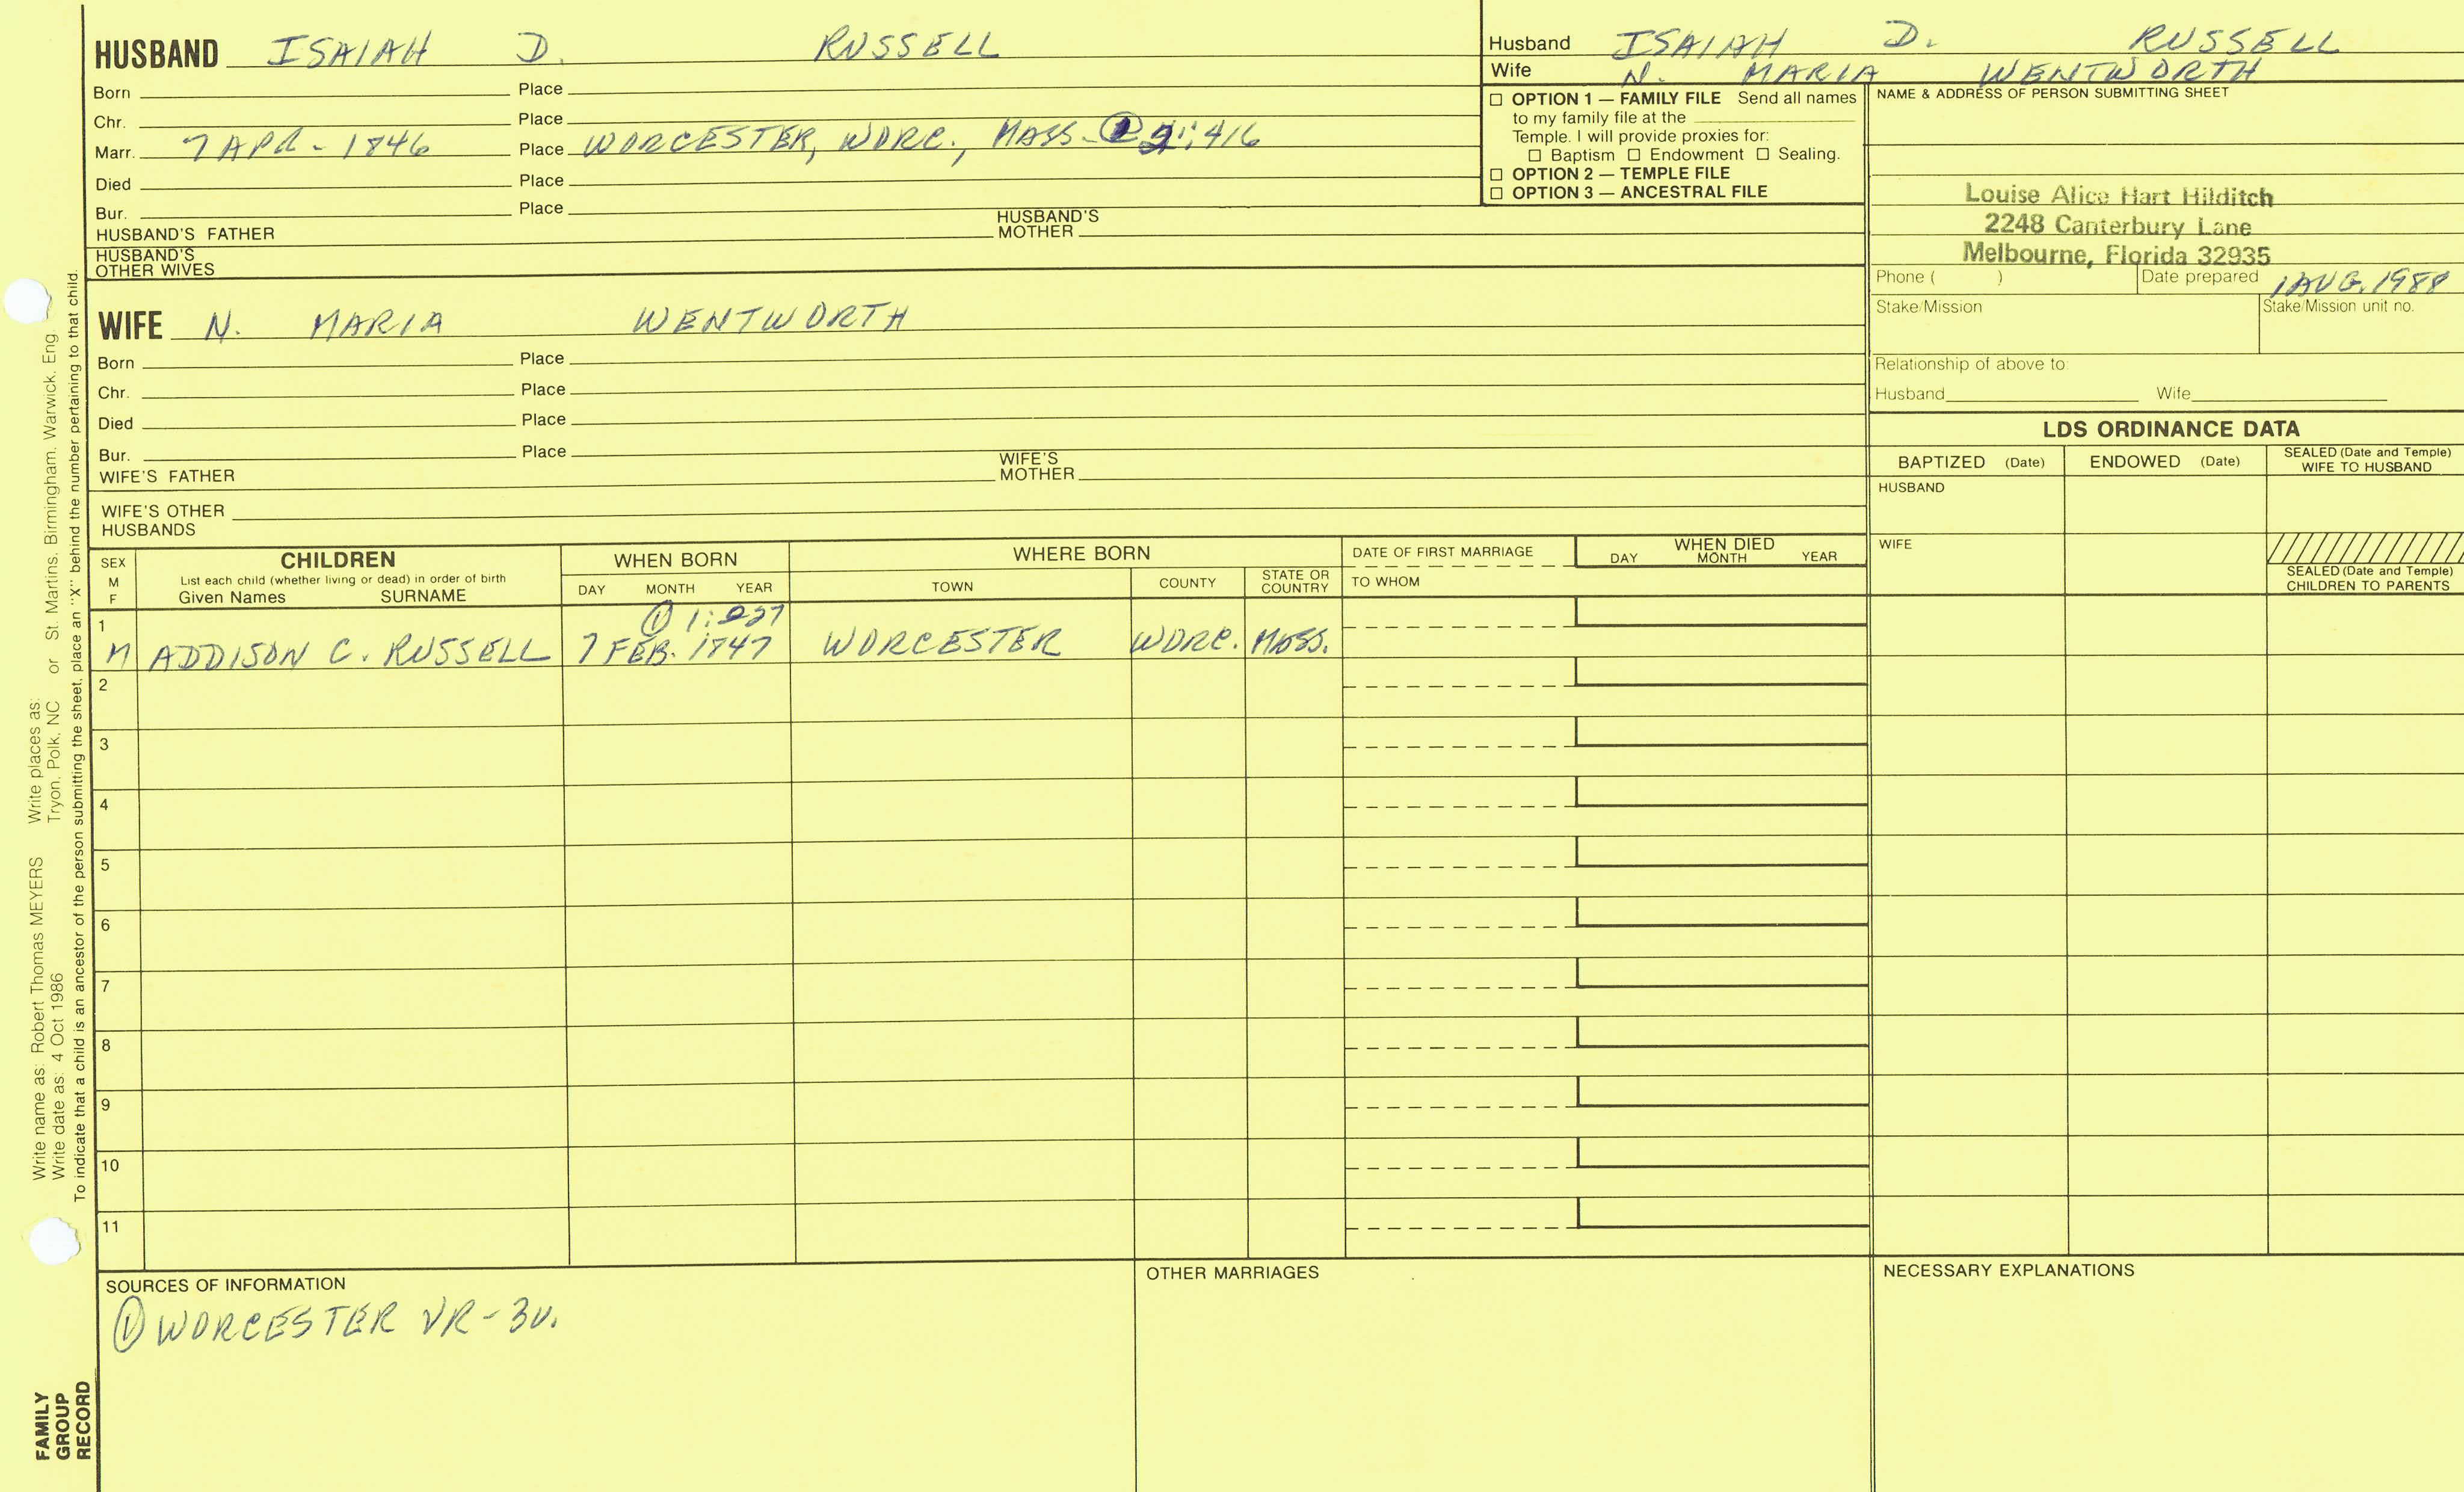 HUSBAND ISAIAH D. RUSSELL
Born Place
Chr. Place
Marr. 7 APR - 1846 Place WORCESTER, WORC., MASS. :416
Died Place
Bur. Place
HUSBAND'S FATHER HUSBAND'S MOTHER
HUSBAND'S OTHER WIVES
Husband ISAIAH D. RUSSELL
Wife N. MARIA WENTWORTH
☐ OPTION 1 — FAMILY FILE Send all names
to my family file at the
Temple. I will provide proxies for:
☐ Baptism ☐ Endowment ☐ Sealing.
☐ OPTION 2 — TEMPLE FILE
☐ OPTION 3 — ANCESTRAL FILE
NAME & ADDRESS OF PERSON SUBMITTING SHEET
Louise Alice Hart Hilditch
2248 Canterbury Lane
Melbourne, Florida 32935
Phone ( ) Date prepared 1 AUG. 1988
Stake/Mission Stake/Mission unit no.
Relationship of above to:
Husband Wife
WIFE N. MARIA WENTWORTH
Born Place
Chr. Place
Died Place
Bur. Place
WIFE'S FATHER WIFE'S MOTHER
WIFE'S OTHER
HUSBANDS
LDS ORDINANCE DATA
BAPTIZED (Date) ENDOWED (Date) SEALED (Date and Temple) WIFE TO HUSBAND
HUSBAND
WIFE
SEALED (Date and Temple)
CHILDREN TO PARENTS
SEX M F
CHILDREN
List each child (whether living or dead) in order of birth
Given Names SURNAME
WHEN BORN
DAY MONTH YEAR
WHERE BORN
TOWN COUNTY STATE OR COUNTRY
DATE OF FIRST MARRIAGE
TO WHOM
WHEN DIED
DAY MONTH YEAR
1 ①
M ADDISON C. RUSSELL 7 FEB. 1847 WORCESTER WORC. MASS.
2
3
4
5
6
7
8
9
10
11
SOURCES OF INFORMATION
① WORCESTER VR - 3v.
OTHER MARRIAGES
NECESSARY EXPLANATIONS
Write name as: Robert Thomas MEYERS Write places as:
Write date as: 4 Oct 1986 Tryon, Polk, NC or St. Martins, Birmingham, Warwick, Eng
To indicate that a child is an ancestor of the person submitting the sheet, place an "X" behind the number pertaining to that child.
FAMILY
GROUP
RECORD